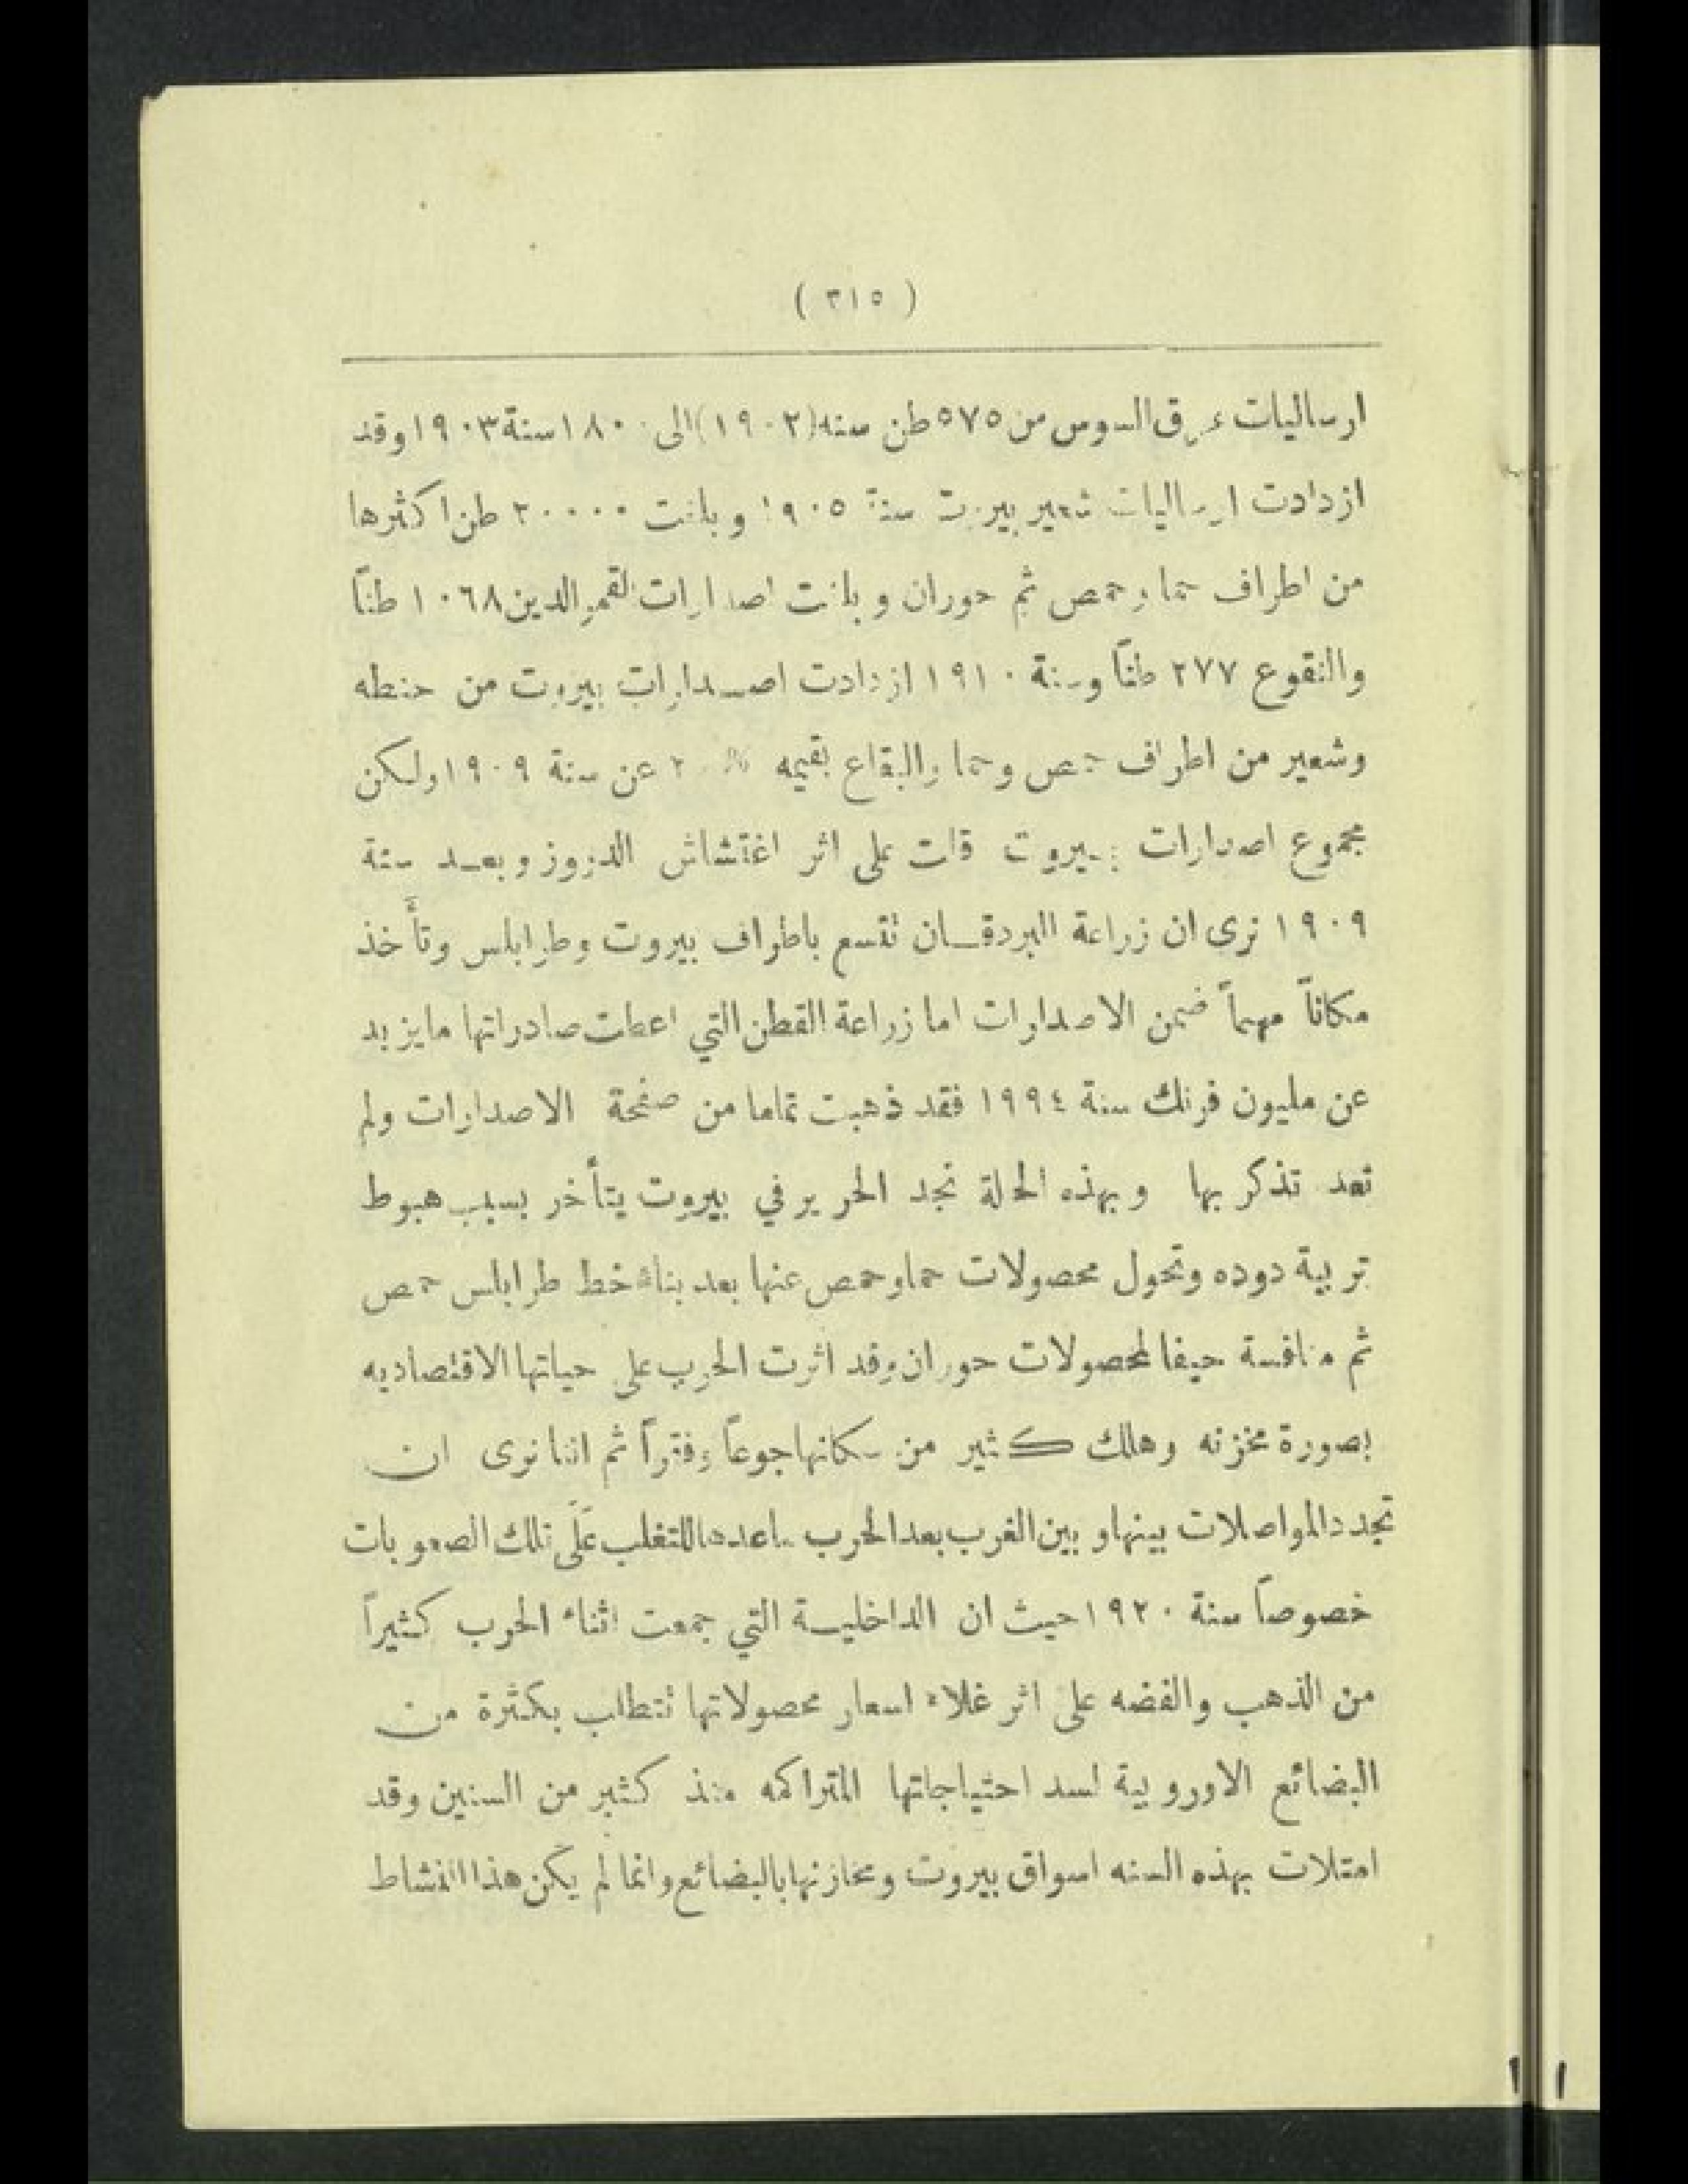 ( ٣١٥ )
ارساليات عرق السوس من ٥٧٥ طن سنه (١٩٠٢) الى ١٨٠٠ سنة ١٩٠٣ وقد
ازدادت ارساليات شعير بيروت سنة ١٩٠٥ وبلغت ٢٠٠٠٠ طن اكثرها
من اطراف حما وحمص ثم حوران وبلغت اصدارات القمر الدين ١٠٦٨ طناً
والنقوع ٢٧٧ طناً وسنة ١٩١٠ ازدادت اصدارات بيروت من حنطه
وشعير من اطراف حمص وحما والبقاع بقيمه عن سنة ١٩٠٩ ولكن
مجموع اصدارات بيروت قلت على اثر اغتشاش الدروز وبعد سنة
١٩٠٩ نرى ان زراعة البردقان تتسع باطراف بيروت وطرابلس وتأخذ
مكاناً مهماً ضمن الاصدارات اما زراعة القطن التي اعطت صادراتها مايزيد
عن مليون فرنك سنة ١٩٩٤ فقد ذهبت تماما من صفحة الاصدارات ولم
تعد تذكر بها وبهذه الحالة نجد الحرير في بيروت يتأخر بسبب هبوط
تربية دوده وتحول محصولات حما وحمص عنها بعد بناء خط طرابلس حمص
ثم منافسة حيفا لمحصولات حوران وقد اثرت الحرب على حياتها الاقتصاديه
بصورة مخزنه وهلك كثير من سكانها جوعاً وفقراً ثم اننا نرى ان
تجدد المواصلات بينها وبين الغرب بعد الحرب ساعدها للتغلب على تلك الصعوبات
خصوصاً سنة ١٩٢٠ حيث ان الداخلية التي جمعت اثناء الحرب كثيراً
من الذهب والفضه على اثر غلاء اسعار محصولاتها تتطلب بكثرة من
البضائع الاوروبية لسد احتياجاتها المتراكمه منذ كثير من السنين وقد
امتلات بهذه السنه اسواق بيروت ومخازنها بالبضائع وانما لم يكن هذا النشاط